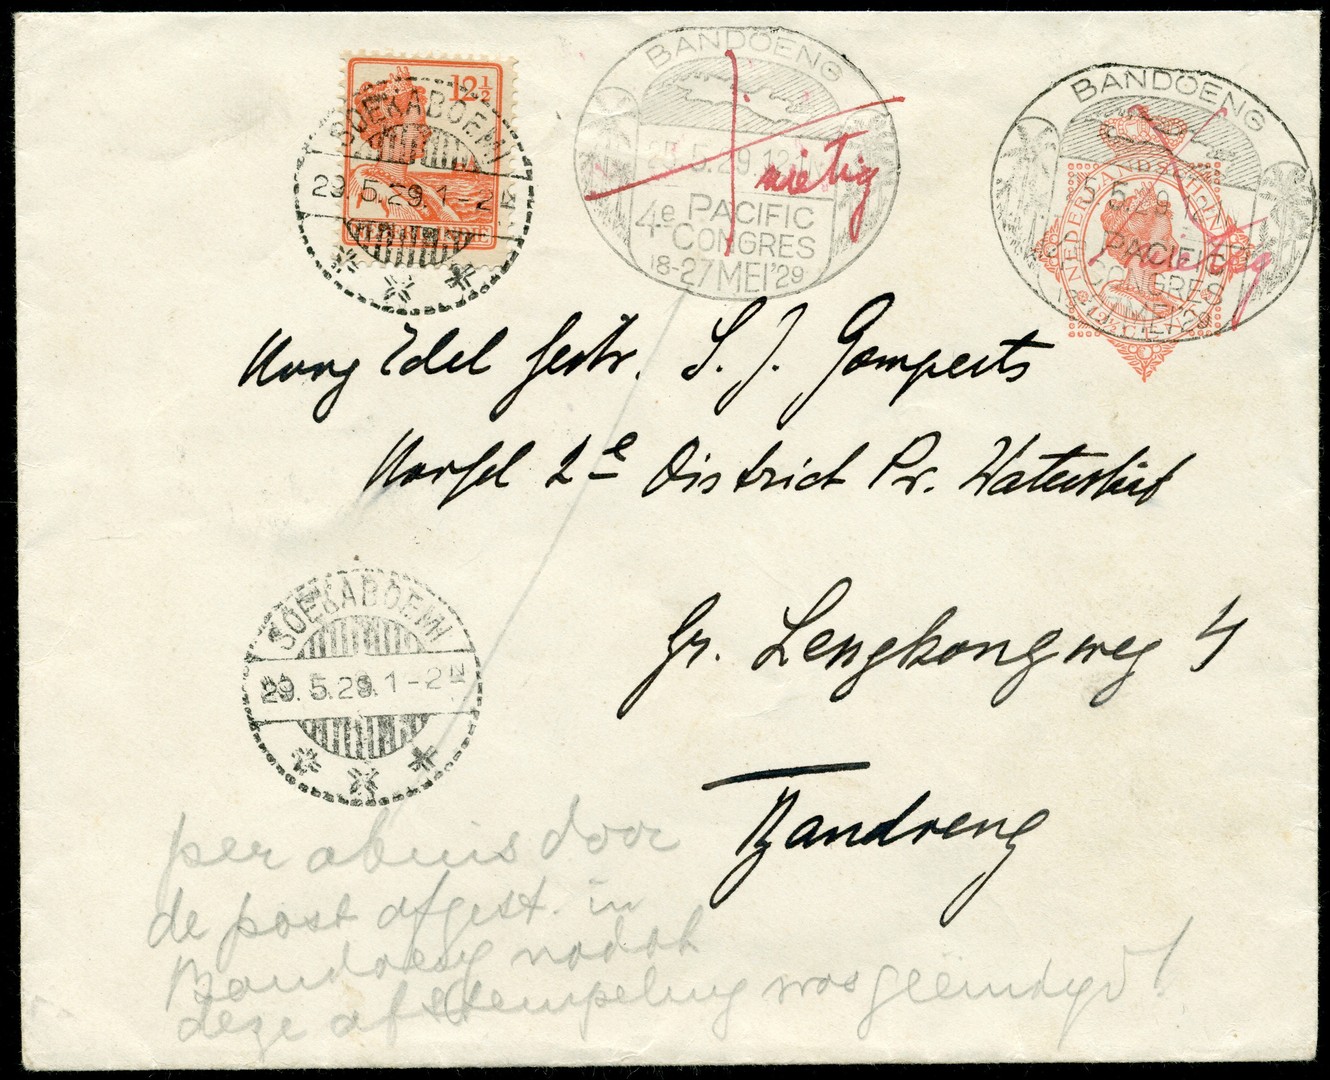 12½
SOEKABOEMI
29.5.29.1-2N
BANDOENG
29.5.29.12
4e PACIFIC
CONGRES
18-27 MEI '29
nietig
BANDOENG
5.29.12
PACIFIC
CONGRES
NEDERLANDSCH
12½ C
nietig
Hoog Edel Gestr. S. J. Gomperts
2e District Pr. Waterst
Gr. Lengkongweg 4
Bandoeng
SOEKABOEMI
29.5.29.1-2N
per abuis door
de post afgest. in
Bandoeng nadat
deze afstempeling was geëindigd!